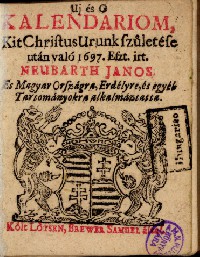 Uj és O
KALENDARIOM,
Kit Christus Urunk születése
után való 1697. Eszt. irt.
NEUBARTH JANOS.
Es Magyar Országra, Erdélyre, és egyéb
Tartományokra alkalmaztatta.
Hungarico
Költ LÖTSEN, BREWER SAMUEL által.